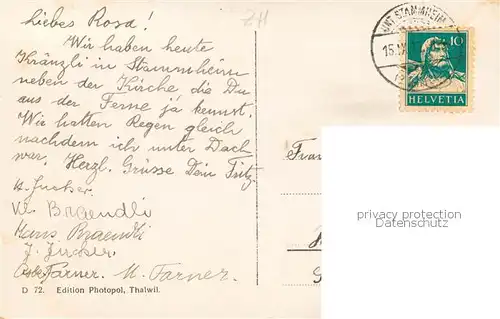 Liebes Rosa!
Wir haben heute
Kränzli in Stammheim
neben der Kirche die Du
aus der Ferne ja kennst.
Wir hatten Regen gleich
nachdem ich unter Dach
war. Herzl. Grüsse Dein Fritz
Kl. Braendli
Hans Braendli
Farner. M. Farner.
D 72. Edition Photopol, Thalwil.
211
UNT. STAMMHEIM
15.
10
HELVETIA
Frau
privacy protection
Datenschutz